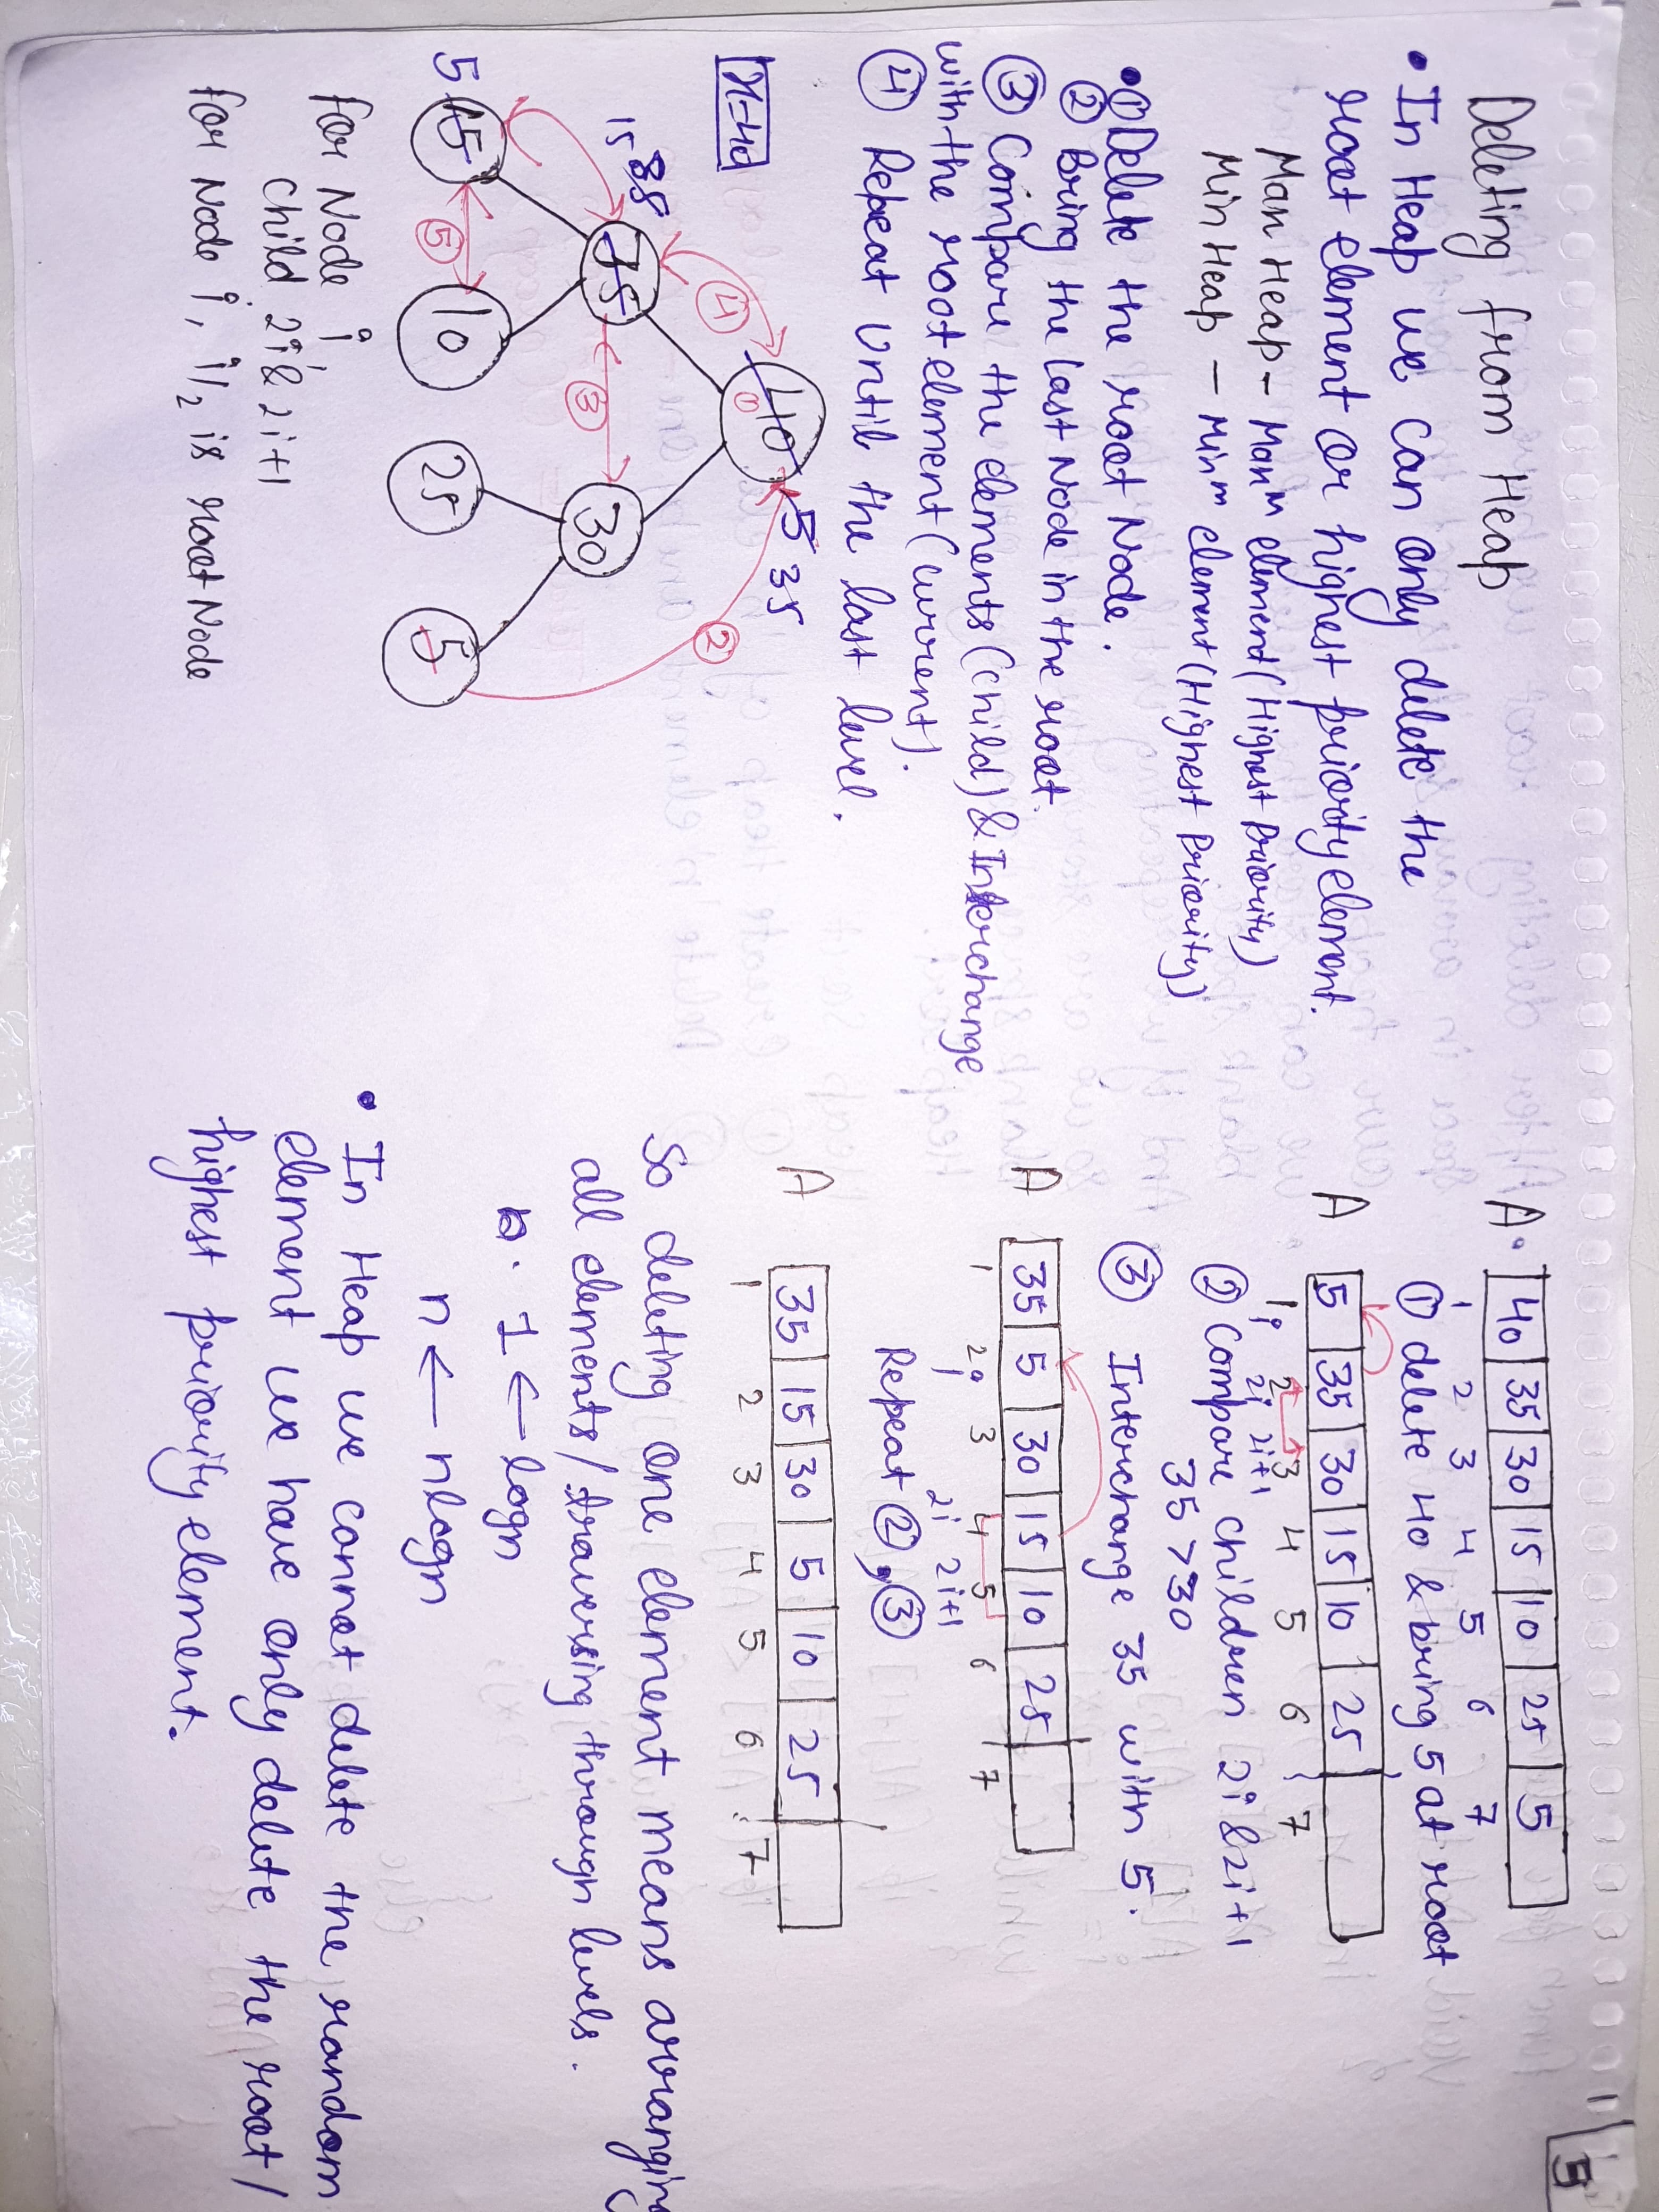 5
Deleting from Heap
• In Heap we can only delete the
root element or highest priority element.
Man Heap - Manᵐ element (Highest Priority)
Min Heap - Minᵐ element (Highest Priority)
• ① Delete the root Node.
② Bring the last Node in the root.
③ Compare the elements (child) & Interchange
with the root element (current).
④ Repeat until the last level.
x=40
40 5 35
① ④ ②
15 35
35 ③ 30
5 15 ⑤ 10 25 5
for Node i,
child 2i & 2i+1
for Node i, i/2 is root Node
A 40 35 30 15 10 25 5
1 2 3 4 5 6 7
① delete 40 & bring 5 at root
A 5 35 30 15 10 25
1 2 3 4 5 6 7
i 2i 2i+1
② Compare children 2i & 2i+1
35 > 30
③ Interchange 35 with 5.
A 35 5 30 15 10 25
1 2 3 4 5 6 7
i 2i 2i+1
Repeat ②, ③
A 35 15 30 5 10 25
1 2 3 4 5 6 7
So deleting one element means arranging
all elements / traversing through levels.
1 ← logn
n ← nlogn
• In Heap we cannot delete the random
element we have only delete the root /
highest priority element.